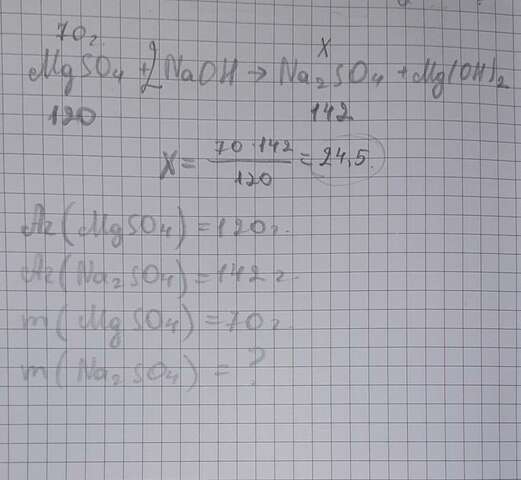 70г. x
MgSO4 + 2NaOH → Na2SO4 + Mg(OH)2
120 142
X = 70·142 / 120 = 24,5.
Ar(MgSO4) = 120г.
Ar(Na2SO4) = 142г.
m(MgSO4) = 70г.
m(Na2SO4) = ?